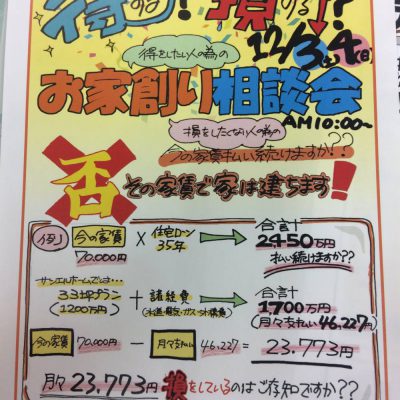 得する!損する!?
12/3(土)4(日)
得をしたい人の為の
お家創り相談会
AM10:00~
損をしたくない人の為の
今の家賃払い続けますか??
否 その家賃で家は建ちます!
例) 今の家賃 70.000円 × 住宅ローン 35年 合計 2450万円
払い続けますか??
サンエルホームでは…
33坪プラン (1200万円) + 諸経費 合計 1700万円
(月々支払い 46.227円)
今の家賃 70.000円 − 月々支払 46.227 = 23.773円
月々 23.773円 損をしているのはご存知ですか??